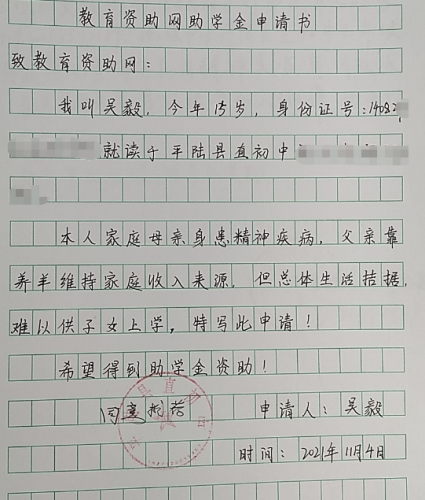 教育资助网助学金申请书
致教育资助网：
我叫吴毅，今年15岁，身份证号：14082
就读于平陆县直初中
本人家庭母亲身患精神疾病，父亲靠
养羊维持家庭收入来源，但总体生活拮据，
难以供子女上学，特写此申请！
希望得到助学金资助！
申请人：吴毅
时间：2021年11月4日